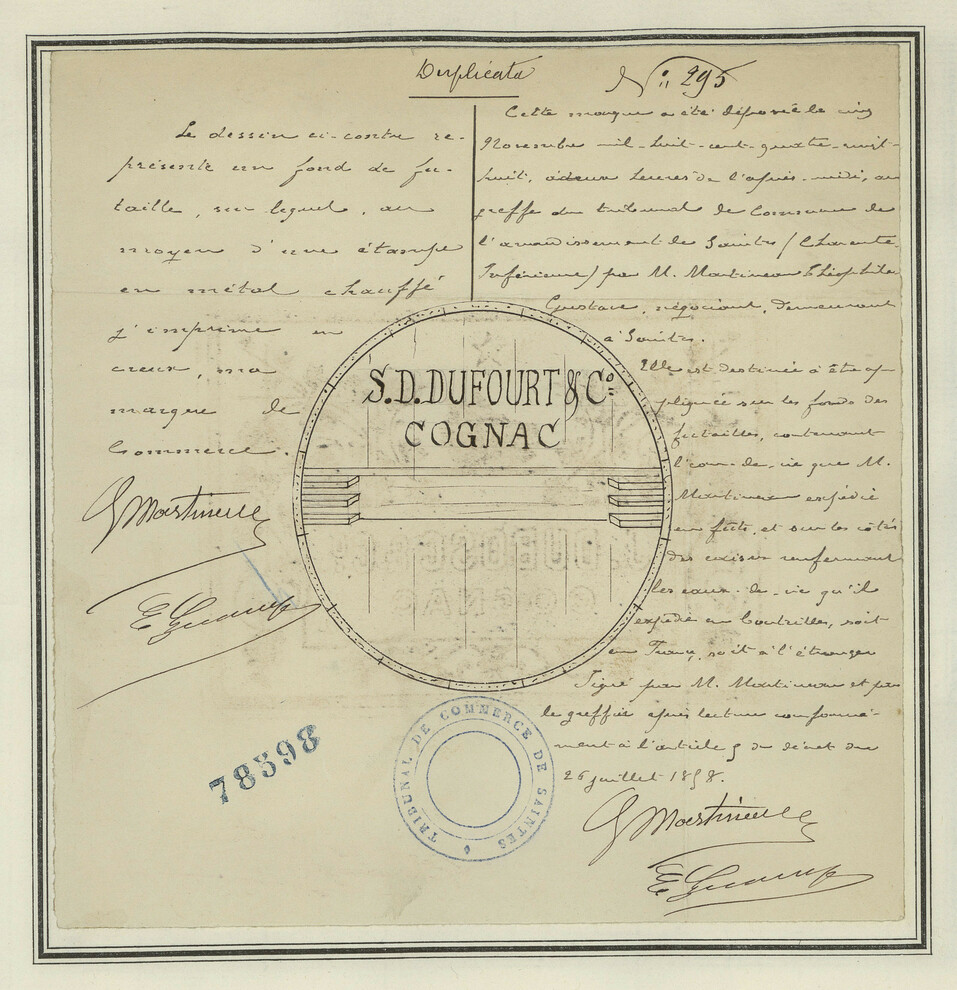 Duplicata
N° 295
Le dessin ci-contre re-
présente un fond de fu-
taille, sur lequel, au
moyen d'une étampe
en métal chauffé
j'imprime en
creux, ma
marque de
Commerce.
G Martineau
Cette marque a été déposée le cinq
Novembre mil-huit-cent-quatre-vingt-
huit, à deux heures de l'après-midi, au
greffe du tribunal de Commerce de
l'arrondissement de Saintes (Charente-
Inférieure) par M. Martineau Théophile
Gustave, négociant, demeurant
à Saintes.
Elle est destinée à être ap-
pliquée sur les fonds des
futailles, contenant
l'eau-de-vie que M.
Martineau expédie
en fûts, et sur les côtés
des caisses renfermant
les eaux-de-vie qu'il
expédie en bouteilles, soit
en France, soit à l'étranger
Signé par M. Martineau et par
le greffier après lecture conformé-
ment à l'article 5 du décret du
26 juillet 1858.
G Martineau
S.D. DUFOURT & Co
COGNAC
TRIBUNAL DE COMMERCE DE SAINTES
78598